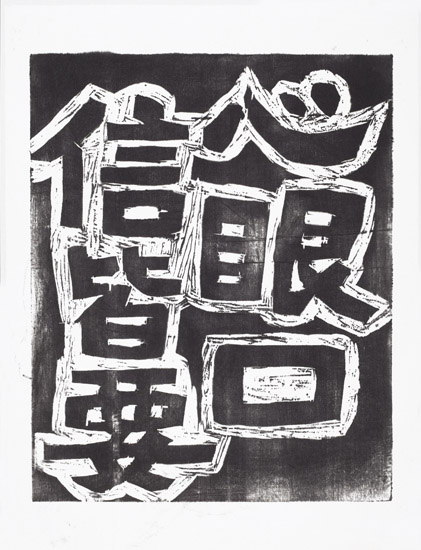 心眼口
信皆要